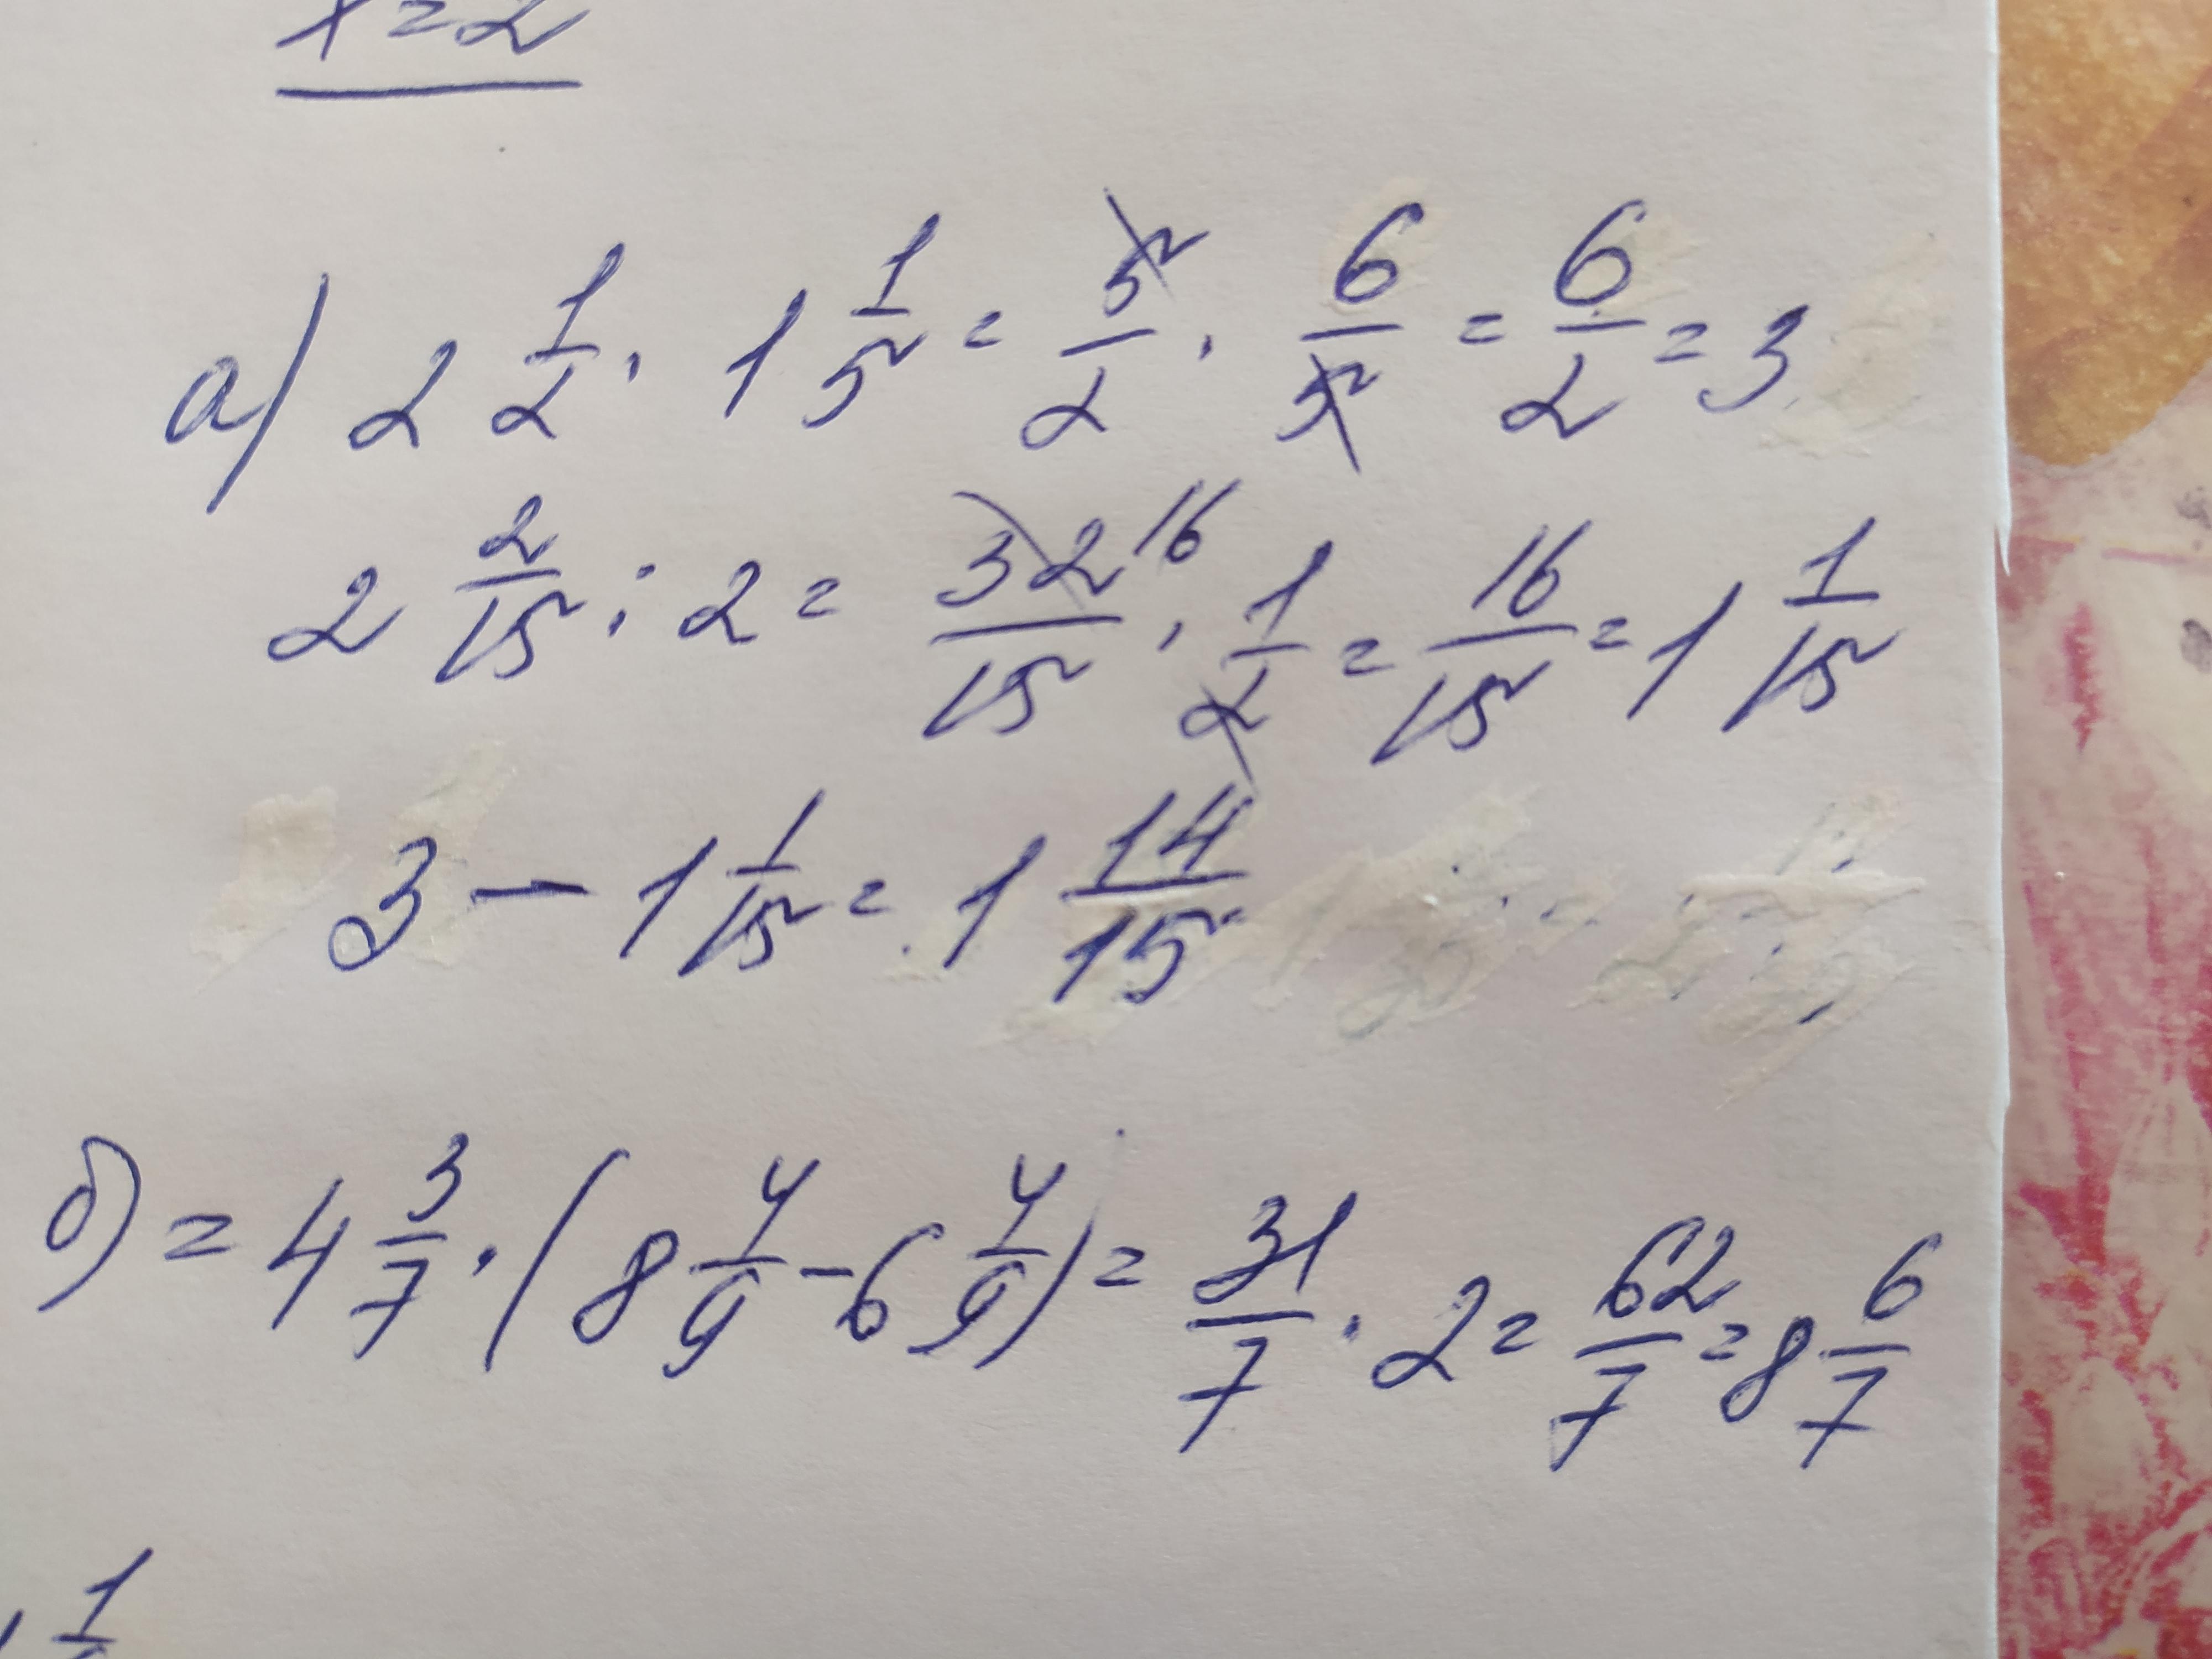 x = 2
а) 2 1/2 · 1 1/5 = 5/2 · 6/5 = 6/2 = 3
2 2/15 : 2 = 32/15 16 · 1/2 = 16/15 = 1 1/15
3 – 1 1/15 = 1 14/15
б) = 4 3/7 · (8 4/9 – 6 4/9) = 31/7 · 2 = 62/7 = 8 6/7